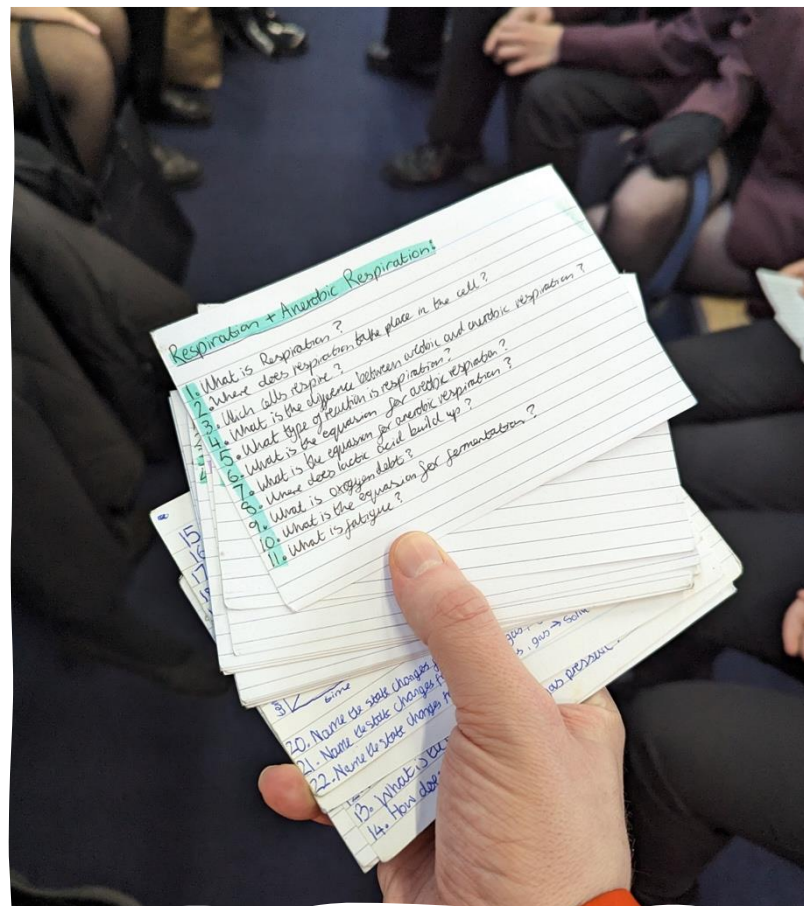 Respiration + Anerobic Respiration:
1. What is Respiration?
2. Where does respiration take place in the cell?
3. Which cells respire?
4. What is the difference between areobic and anerobic respiration?
5. What type of reaction is respiration?
6. What is the equasion for areobic respiration?
7. What is the equasion for anerobic respiration?
8. Where does lactic acid build up?
9. What is oxygen debt?
10. What is the equasion for fermentation?
11. What is fatigue?
15
16
17
time
20. Name the state changes
gas
21. Name the state changes
, gas → solid
22. Name the state changes
gas pressure.
13. What is the
14. How does